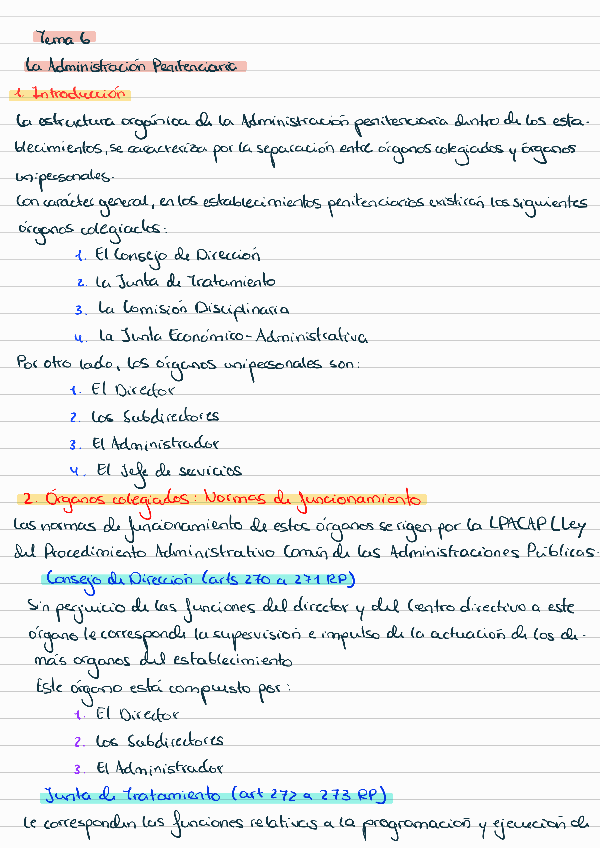 Tema 6
La Administración Penitenciaria
1. Introducción
La estructura orgánica de la Administración penitenciaria dentro de los esta-
blecimientos, se caracteriza por la separación entre órganos colegiados y órganos
unipersonales.
Con carácter general, en los establecimientos penitenciarios existirán los siguientes
órganos colegiados:
1. El Consejo de Dirección
2. La Junta de Tratamiento
3. La Comisión Disciplinaria
4. La Junta Económico-Administrativa
Por otro lado, los órganos unipersonales son:
1. El Director
2. Los Subdirectores
3. El Administrador
4. El Jefe de servicios
2. Órganos colegiados: Normas de funcionamiento
Las normas de funcionamiento de estos órganos se rigen por la LPACAP (Ley
del Procedimiento Administrativo Común de las Administraciones Públicas.
Consejo de Dirección (arts 270 a 271 RP)
Sin perjuicio de las funciones del director y del Centro directivo a este
órgano le corresponde la supervisión e impulso de la actuación de los de-
más organos del establecimiento
Este órgano está compuesto por:
1. El Director
2. Los Subdirectores
3. El Administrador
Junta de Tratamiento (art 272 a 273 RP)
Le corresponden las funciones relativas a la programación y ejecución de